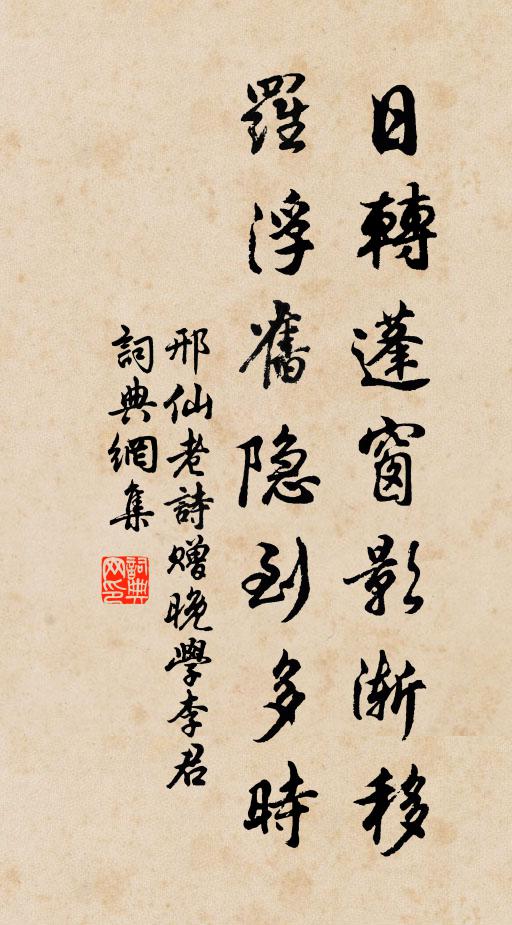 日轉蓬窗影漸移
羅浮舊隐到多時
邢仙老詩赠晚學李君
詞典網集
詞典網印